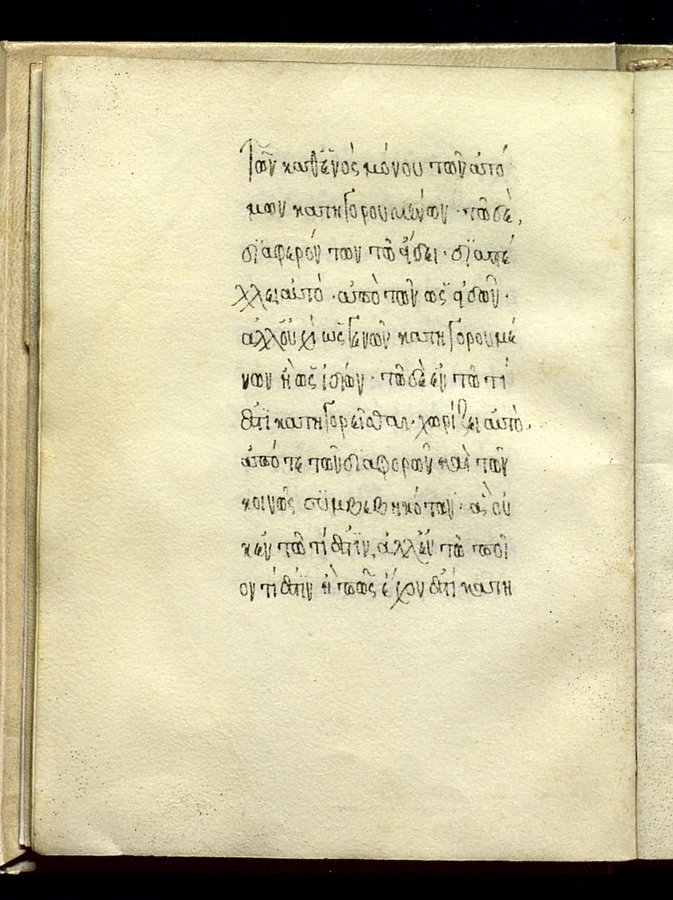 Τῶν καθ' ἑνὸς μόνου τῶν ἀτό
μων κατηγορουμένων· τῶ δὲ,
διαφερόντων τῶ εἴδει· διαστέ
λλει αὐτὸ· ἀπὸ τῶν ὡς εἰδῶν·
ἀλλ' οὐχὶ ὡς γενῶν κατηγορουμέ
νων ἢ ὡς ἰδίων· τῶ δὲ ἐν τῶ τί
ἐστὶ κατηγορεῖσθαι· χωρίζει αὐτὸ·
ἀπό τε τῶν διαφορῶν καὶ τῶν
κοινῶς συμβεβηκότων· ἃ οὐ
κ ἐν τῶ τί ἐστϊν, ἀλλ' ἐν τῶ ποῖ
ον τί ἐστϊν ἢ πῶς ἔχον ἐστὶ κατη